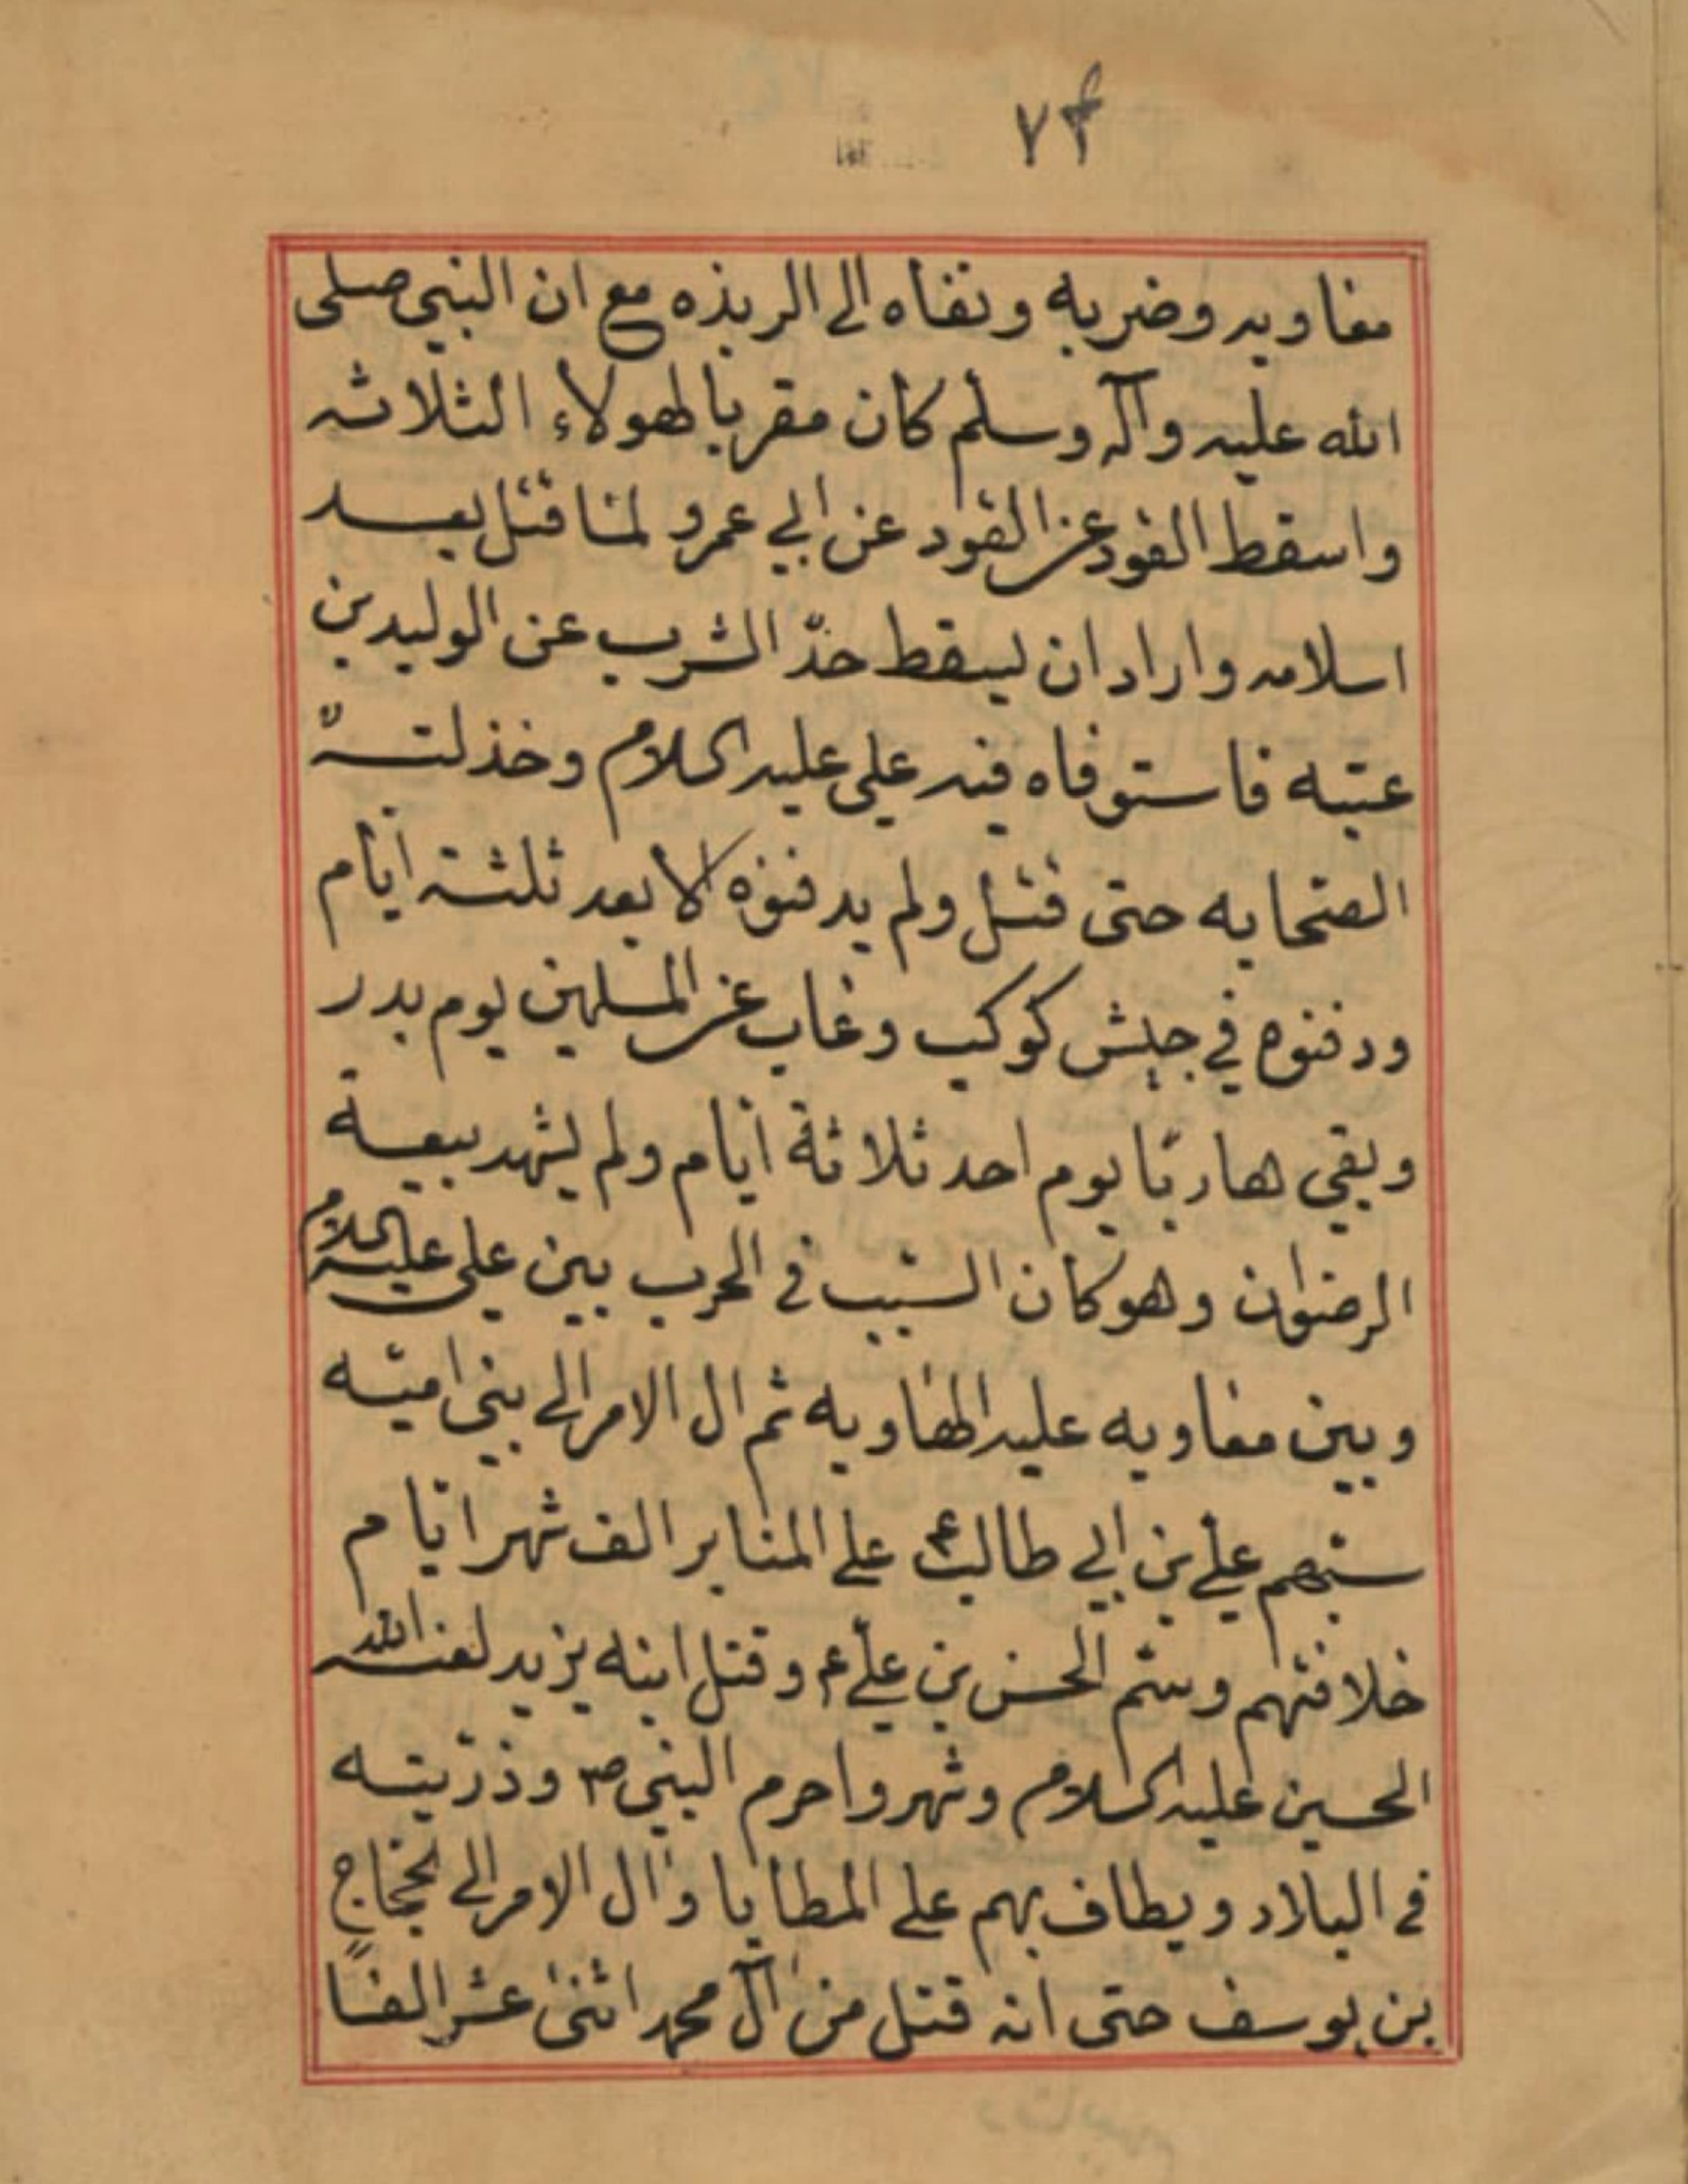 ٧٤
معاويه وضربه ونفاه الى الربذه مع ان النبى صلى
الله عليه وآله وسلم كان مقربا لهولاء الثلاثه
واسقط القود عن القود عن ابي عمرو لما قتل بعد
اسلامه واراد ان يسقط حدّ الشرب عن الوليد بن
عتبه فاستوفاه فيه على عليه السلام وخذلته
الصحابه حتى قتل ولم يدفنوه الا بعد ثلثة ايّام
ودفنوه في جيش كوكب وغاب عن المسلمين يوم بدر
وبقي هاربًا يوم احد ثلاثة ايام ولم يشهد بيعة
الرضوان وهو كان السبب في الحرب بين على عليه السلام
وبين معاويه عليه الهاويه ثم ال الامر الى بني اميّه
سبهم علي بن ابي طالب ع على المنابر الف شهر ايام
خلافتهم وسم الحسن بن علي ع وقتل ابنه يزيد لعنه الله
الحسين عليه السلام وشهروا حرم النبى ص وذرّيته
في البلاد ويطاف بهم على المطايا وآل الامر الى الحجاج
بن يوسف حتى انه قتل من آل محمد اثنى عشر الفًا